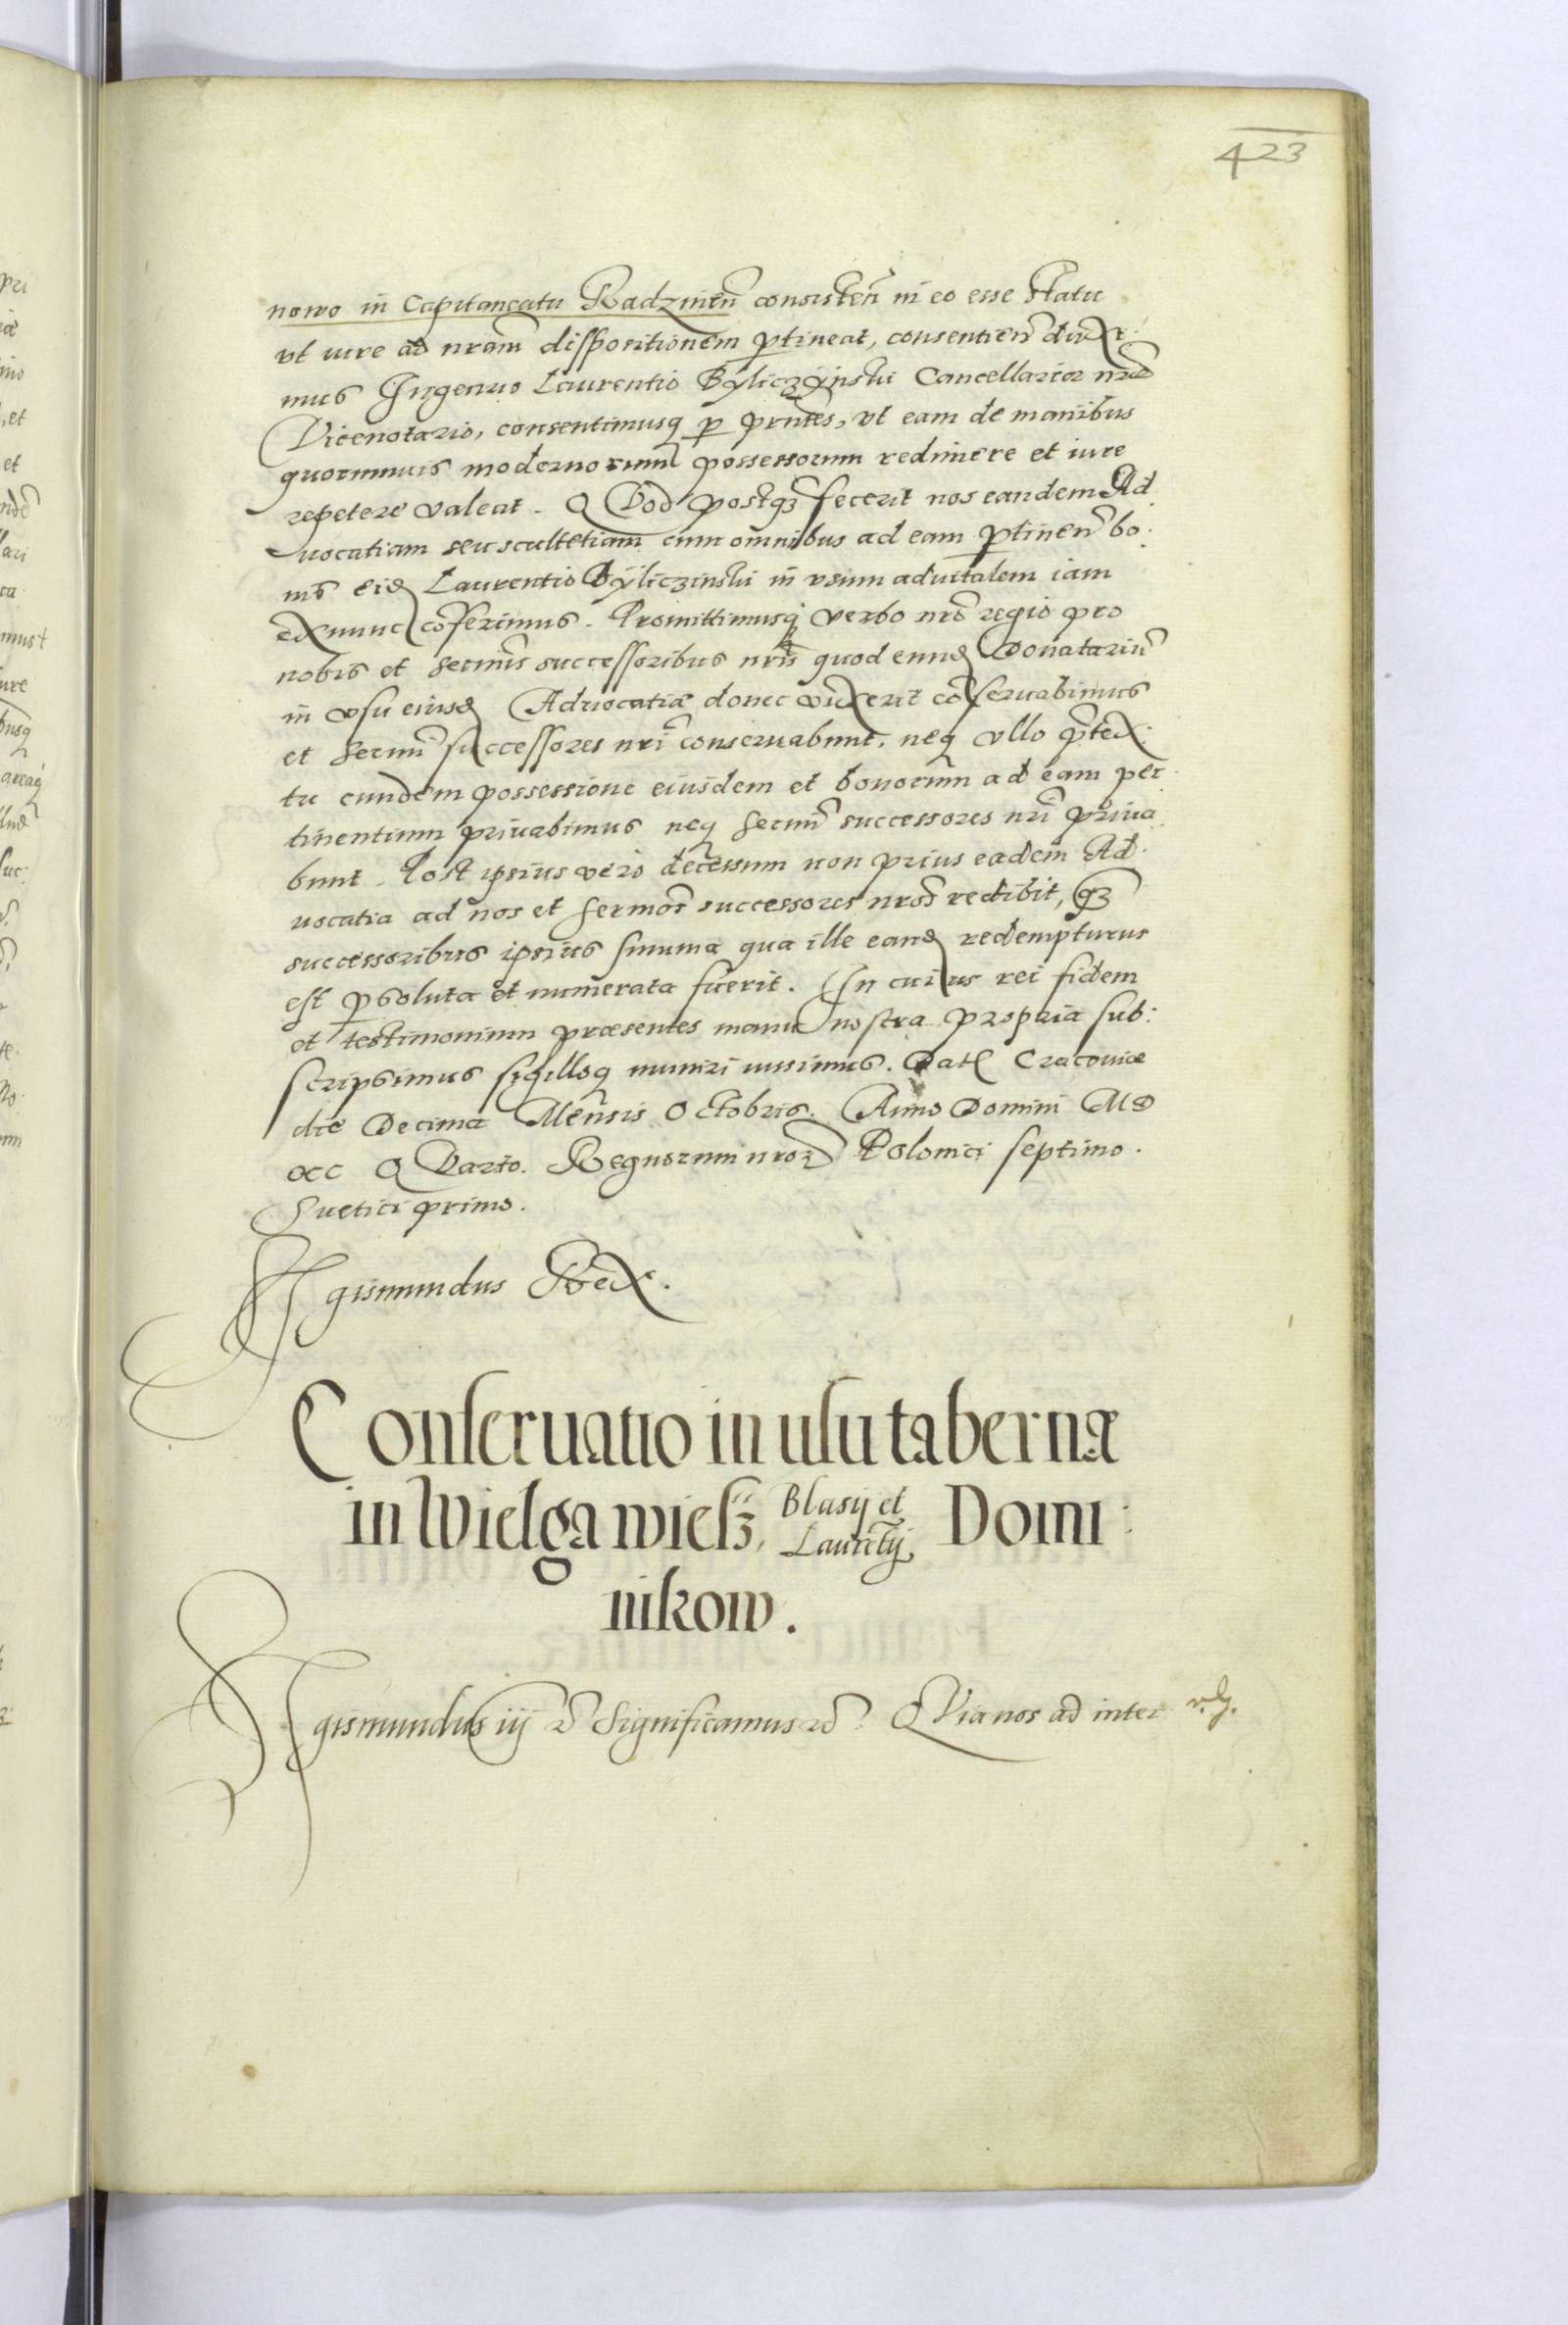 423
nowo in Capitaneatu Radzinen̄ consisten̄ in eo esse statu
vt iure ad nram̄ dispositionem ptineat, consentien̄ dux̅i:
mus Ingenuo Laurentio Byliczÿnski Cancellariæ nræ
Vicenotario, consentimusq̨ p prntes, vt eam de manibus
quorumuis modernorum possessorum redimere et iure
repetere valeat. QVod postq̨ȝ fecerit nos eandem Ad
uocatiam seu scultetiam cum omnibus ad eam ptinen̄ bo:
nis eid Laurentio Byliczinski in vsum aduitalem iam
ex nunc cōferimus. Promittimusq̨ verbo nrō regio pro
nobis et sermīs successoribus nrīs quod eund Donatariū
in vsu eiusd Aduocatiæ donec vixerit cōseruabimus
et sermī successores nrī conseruabunt. neq̨ vllo prætex:
tu eundem possessione eiusdem et bonorum ad eam per
tinentium priuabimus neq̨ sermī successores nrī priua
bunt. Post ipsius vero decessum non prius eadem Ad:
uocatia ad nos et sermos successores nros redibit, q̨ȝ
successoribus ipsius summa qua ille eand redempturus
est psoluta et numerata fuerit. In cuius rei fidem
et testimonium præsentes manu nostra propria sub:
scripsimus sigilloq̨ muniri iussimus. Dat Cracouiæ
die Decima Mensis Octobris. Anno Domini MD
XC QVarto. Regnorum nror Polonici septimo.
Suetici primo.
Sigismundus Rex.
Conseruatio in usu tabernæ
in Wielga wiesz, Blasij et Laurētij Domi:
nikow.
Sigismundus iij &c Significamus &c. QVia nos ad inter